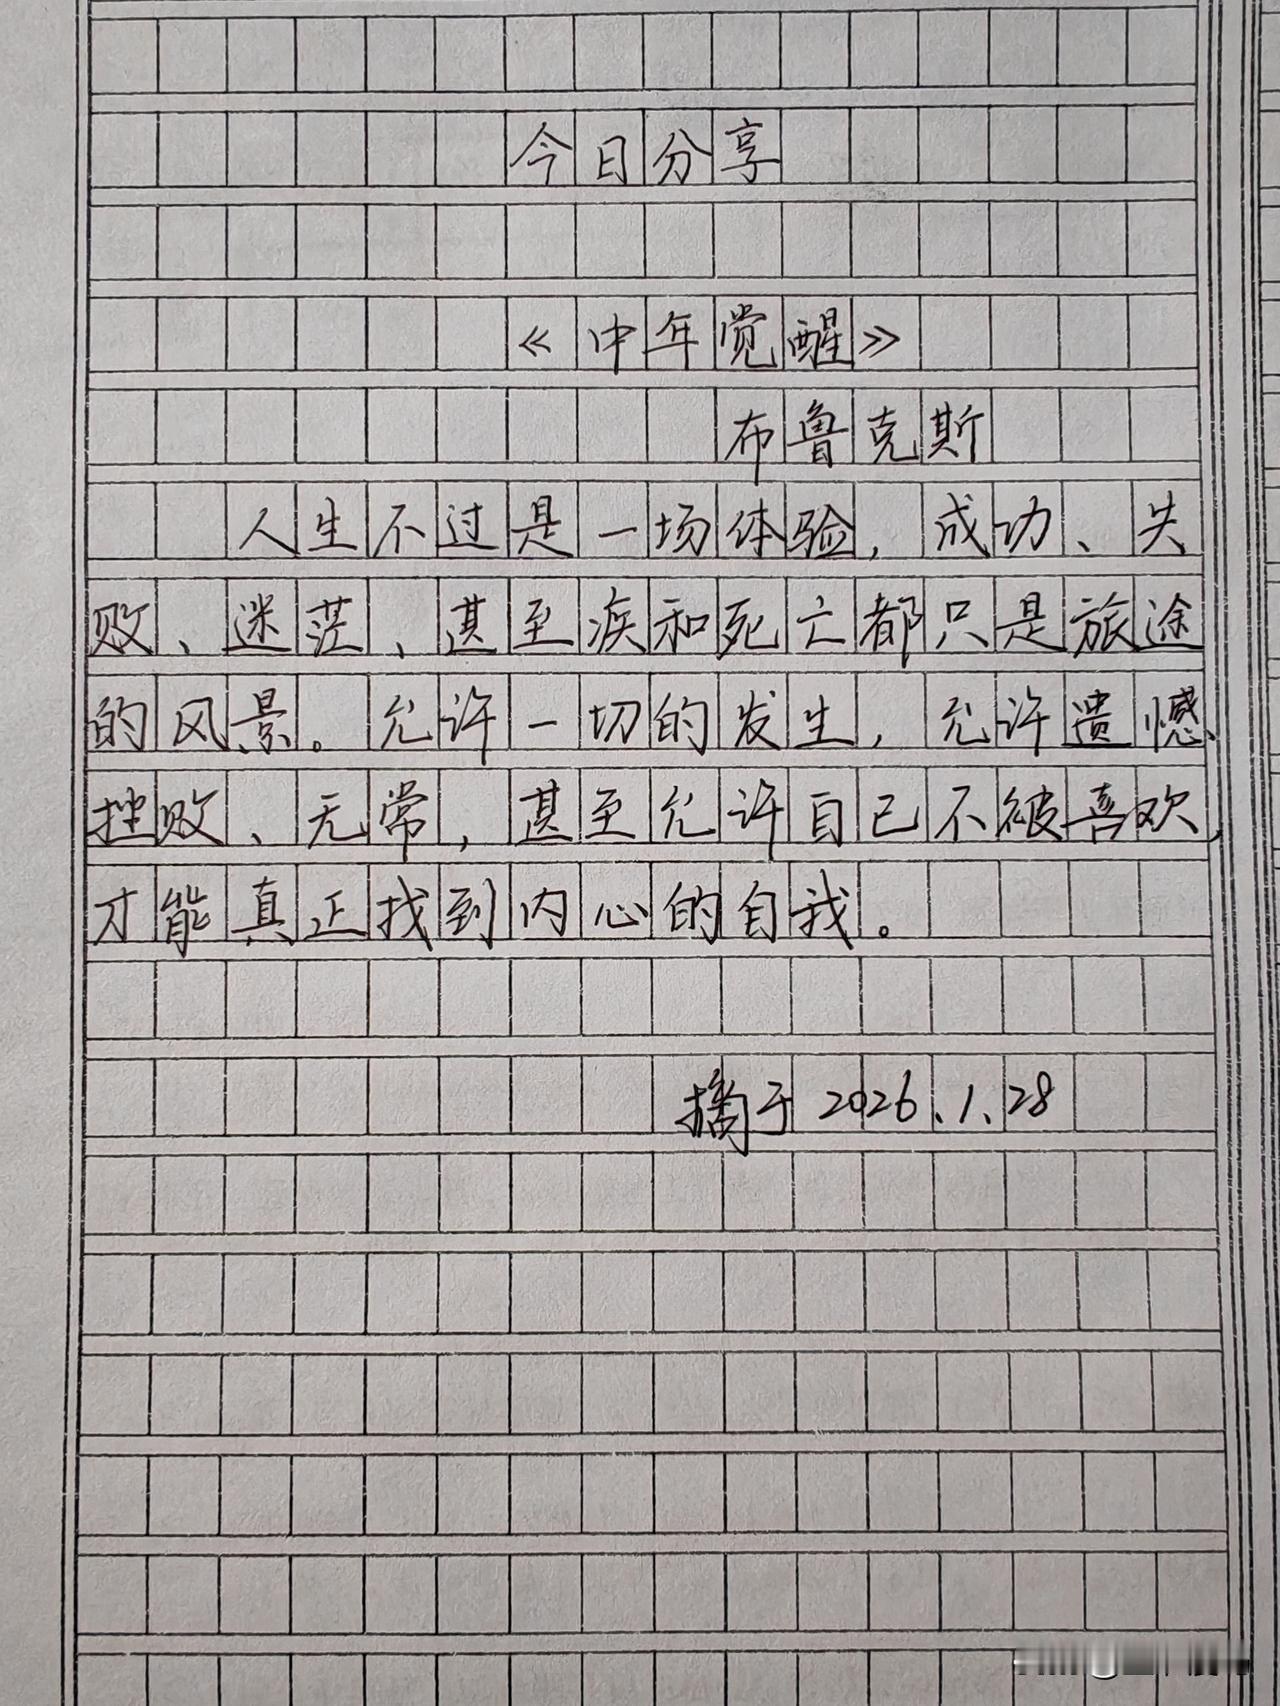 今日分享
《中年觉醒》
布鲁克斯
人生不过是一场体验，成功、失
败、迷茫、甚至疾和死亡都只是旅途
的风景。允许一切的发生，允许遗憾、
挫败、无常，甚至允许自己不被喜欢，
才能真正找到内心的自我。
摘于2026.1.28